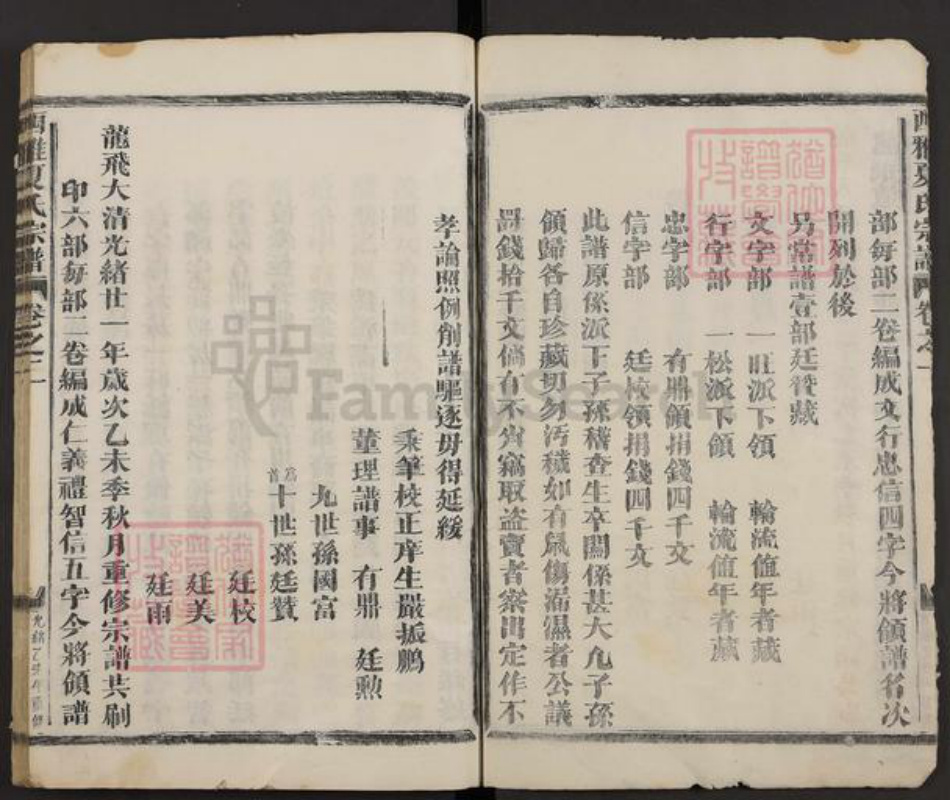 西雅夏氏宗譜 卷之一
部每部二卷編成文行忠信四字今將領譜名次
開列於後
另常譜壹部廷贊藏
文字部 一旺派下領 輪流值年者藏
行字部 一松派下領 輪流值年者藏
忠字部 有鼎領捐錢四千文
信字部 廷校領捐錢四千文
此譜原係派下子孫稽查生卒關係甚大凡子孫
領歸各自珍藏切勿污穢如有鼠傷漏濕者公議
罰錢拾千文倘有不肖竊取盜賣者察出定作不
孝論照例削譜驅逐毋得延緩
秉筆校正庠生嚴振鵬
董理譜事 有鼎 廷勲
九世孫國富
爲首十世孫廷贊
廷校
廷美
廷雨
龍飛大清光緒廿一年歲次乙未季秋月重修宗譜共刷
印六部每部二卷編成仁義禮智信五字今將領譜
西雅夏氏宗譜 卷之一
光緒乙未年重修
FamilySearch